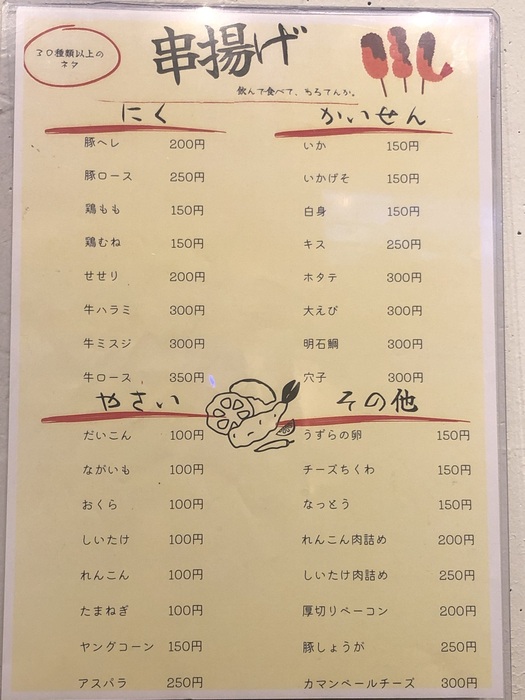 30種類以上の
ネタ
串揚げ
飲んで食べて、もろてんか。
にく
豚ヘレ 200円
豚ロース 250円
鶏もも 150円
鶏むね 150円
せせり 200円
牛ハラミ 300円
牛ミスジ 300円
牛ロース 350円
かいせん
いか 150円
いかげそ 150円
白身 150円
キス 250円
ホタテ 300円
大えび 300円
明石鯛 300円
穴子 300円
やさい
だいこん 100円
ながいも 100円
おくら 100円
しいたけ 100円
れんこん 100円
たまねぎ 100円
ヤングコーン 150円
アスパラ 250円
その他
うずらの卵 150円
チーズちくわ 150円
なっとう 150円
れんこん肉詰め 200円
しいたけ肉詰め 250円
厚切りベーコン 200円
豚しょうが 250円
カマンベールチーズ 300円